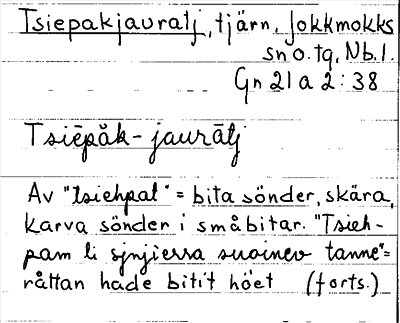 Tsiepakjauratj, tjärn, Jokkmokks
sn o. tg, Nb. l.
Gn 21 a 2:38
Tsiēpåk-jaurātj
Av "tsiehpat" = bita sönder, skära,
karva sönder i småbitar. "Tsieh-
pam li sjnjierra suoinev tanne" =
råttan hade bitit höet (forts.)